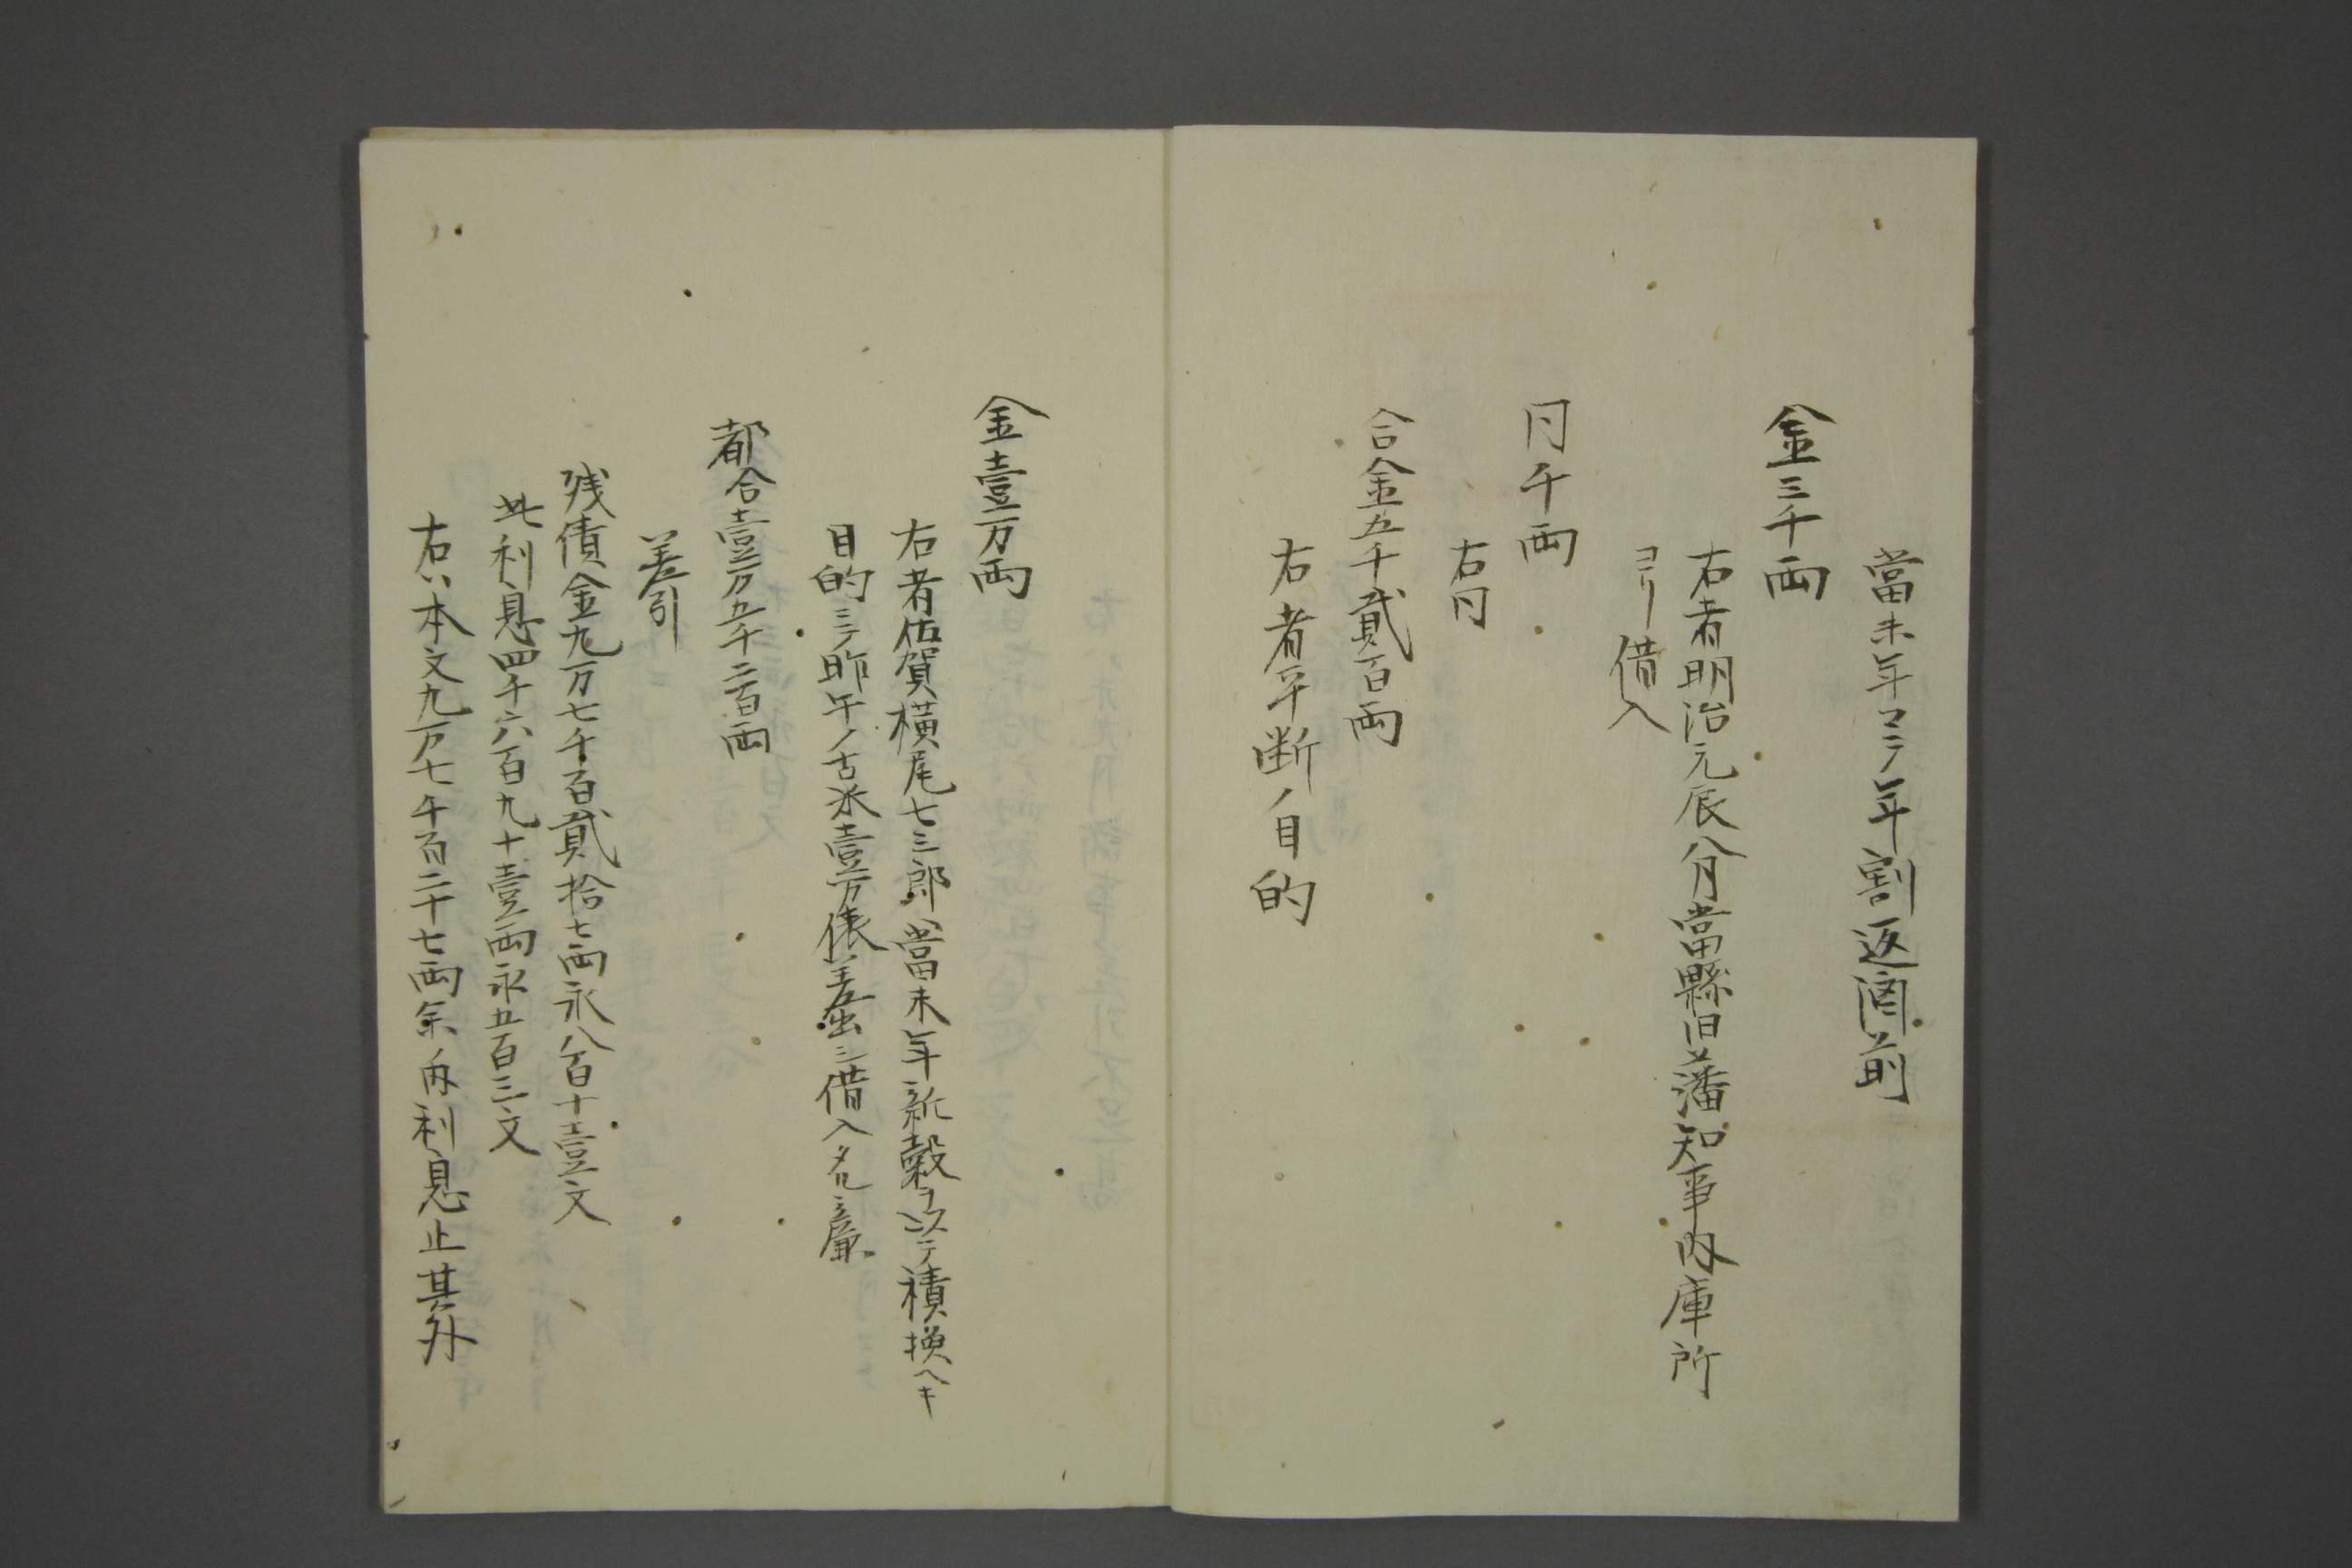 當未年マテ年割返済前
金三千両
右者明治元辰八月當縣旧藩知事内庫所
ヨリ借入
同千両
右同
合金五千貳百両
右者年断ノ目的
金壹万両
右者佐賀横尾七三郎ヘ當未年新穀ヲ以テ積換ヘキ
目的ニテ昨午ノ古米壹万俵差出シ借入タル廉
都合壹万五千二百両
差引
残債金九万七千百貳拾七両永八百十壹文
此利息四千六百九十壹両永五百三文
右ハ本文九万七千百二十七両余ノ内利息止其外